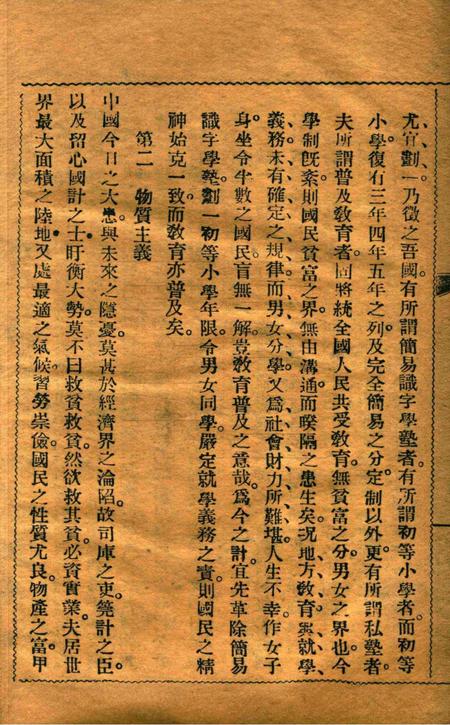 尤宜劃一乃徵之吾國有所謂簡易識字學塾者有所謂初等小學者而初等
小學復有三年四年五年之列及完全簡易之分定制以外更有所謂私塾者
夫所謂普及教育者固將統全國人民共受教育無貧富之分男女之界也今
學制旣紊則國民貧富之界無由溝通而暌隔之患生矣況地方教育與就學
義務未有確定之規律而男女分學又爲社會財力所難堪人生不幸作女子
身坐令半數之國民盲無一解豈教育普及之意哉爲今之計宜先革除簡易
識字學塾劃一初等小學年限令男女同學嚴定就學義務之責則國民之精
神始克一致而教育亦普及矣
第二　物質主義
中國今日之大患與未來之隱憂莫甚於經濟界之淪陷故司庫之吏筦計之臣
以及留心國計之士盱衡大勢莫不曰救貧救貧然欲救其貧必資實業夫居世
界最大面積之陸地又處最適之氣候習勞崇儉國民之性質尤良物產之富甲